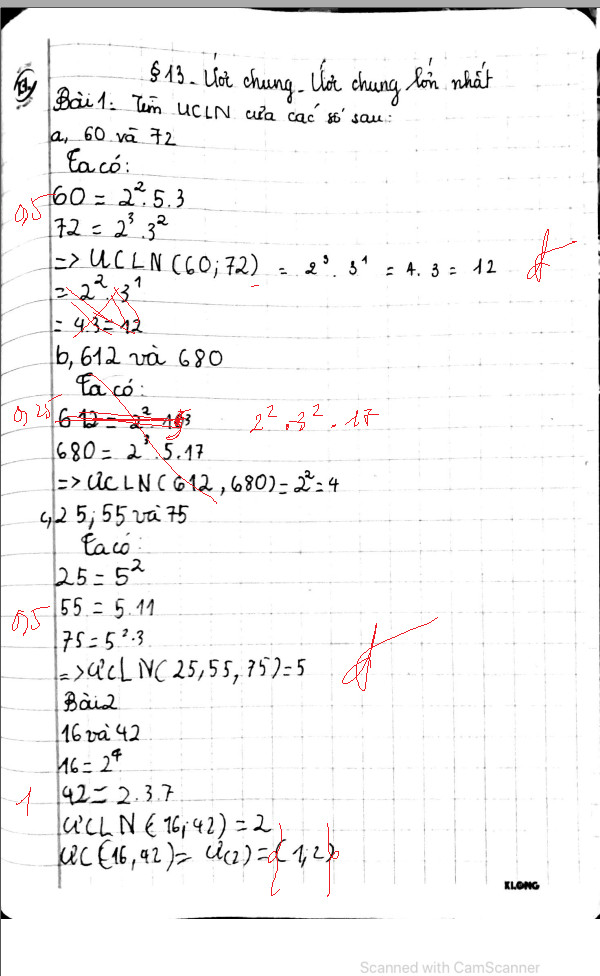 §13. Ước chung. Ước chung lớn nhất
Bài 1: Tìm ƯCLN của các số sau:
a, 60 và 72
Ta có:
0,5 60 = 2². 5.3
72 = 2³.3²
=> ƯCLN(60;72) = 2³. 3¹ = 4.3 = 12
= 2².3¹
= 4.3 = 12
b, 612 và 680
Ta có:
0,25 612 = 2². 2².3².17
680 = 2³.5.17
=> ƯCLN(612,680)=2²=4
c, 25; 55 và 75
Ta có:
25 = 5²
0,5 55 = 5.11
75 = 5².3
=> ƯCLN(25,55,75)=5
Bài 2
16 và 42
16 = 2⁴
1 42 = 2.3.7
ƯCLN(16;42) = 2
ƯC(16,42) = Ư(2) = {1,2}
KLONG
Scanned with CamScanner